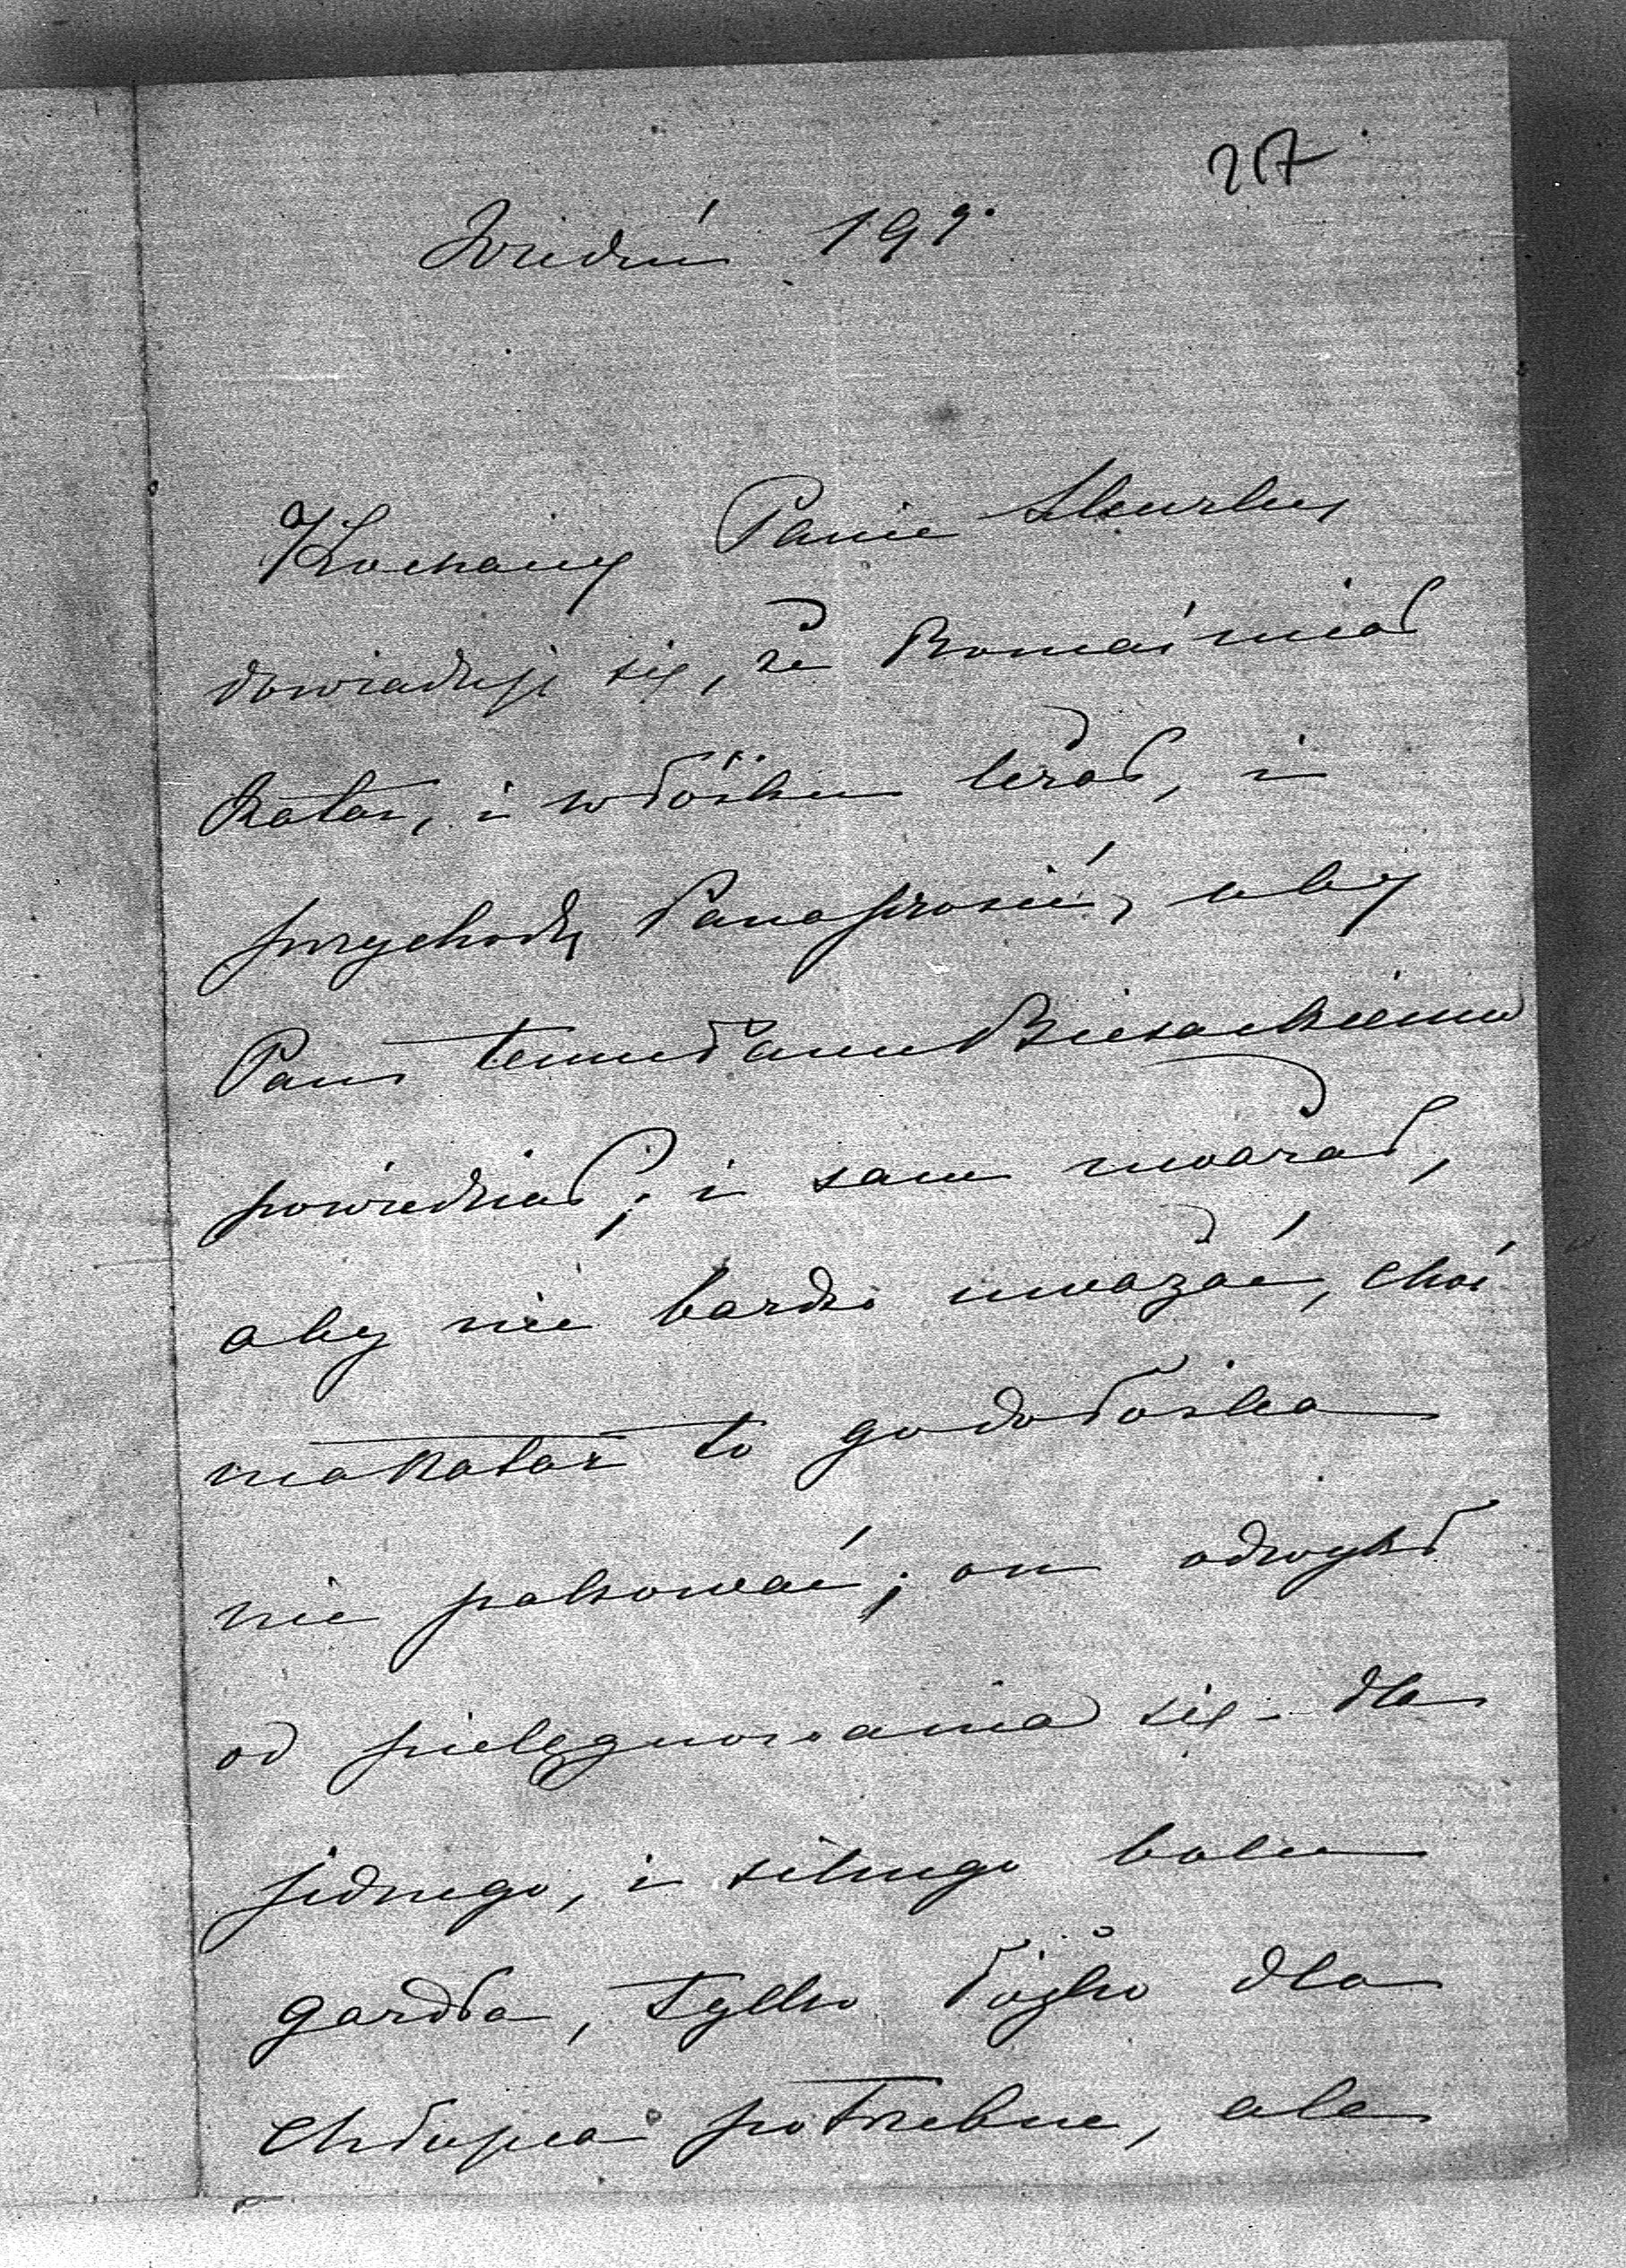 217
Wiedeń 19g.
Kochany Panie
dowiaduję się, że Romaś miał
katar, i w łóżku leżał, i
przychodzę Pana prosić, aby
Pan temu Panu Biesiadkiemu
powiedział; i sam uważał,
aby nie bardzo uważać, choć
ma katar to go do łóżka
nie pakować; on odwykł
od pielęgnowania się. dla
jednego, i silnego bólu
gardła, tylko łóżko dla
chłopca potrzebne, ale